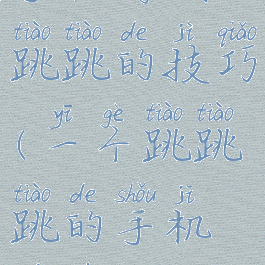 tiào tiào de jì qiǎo
跳跳的技巧
yī gè tiào tiào
(一个跳跳
tiào de shǒu jī
跳的手机